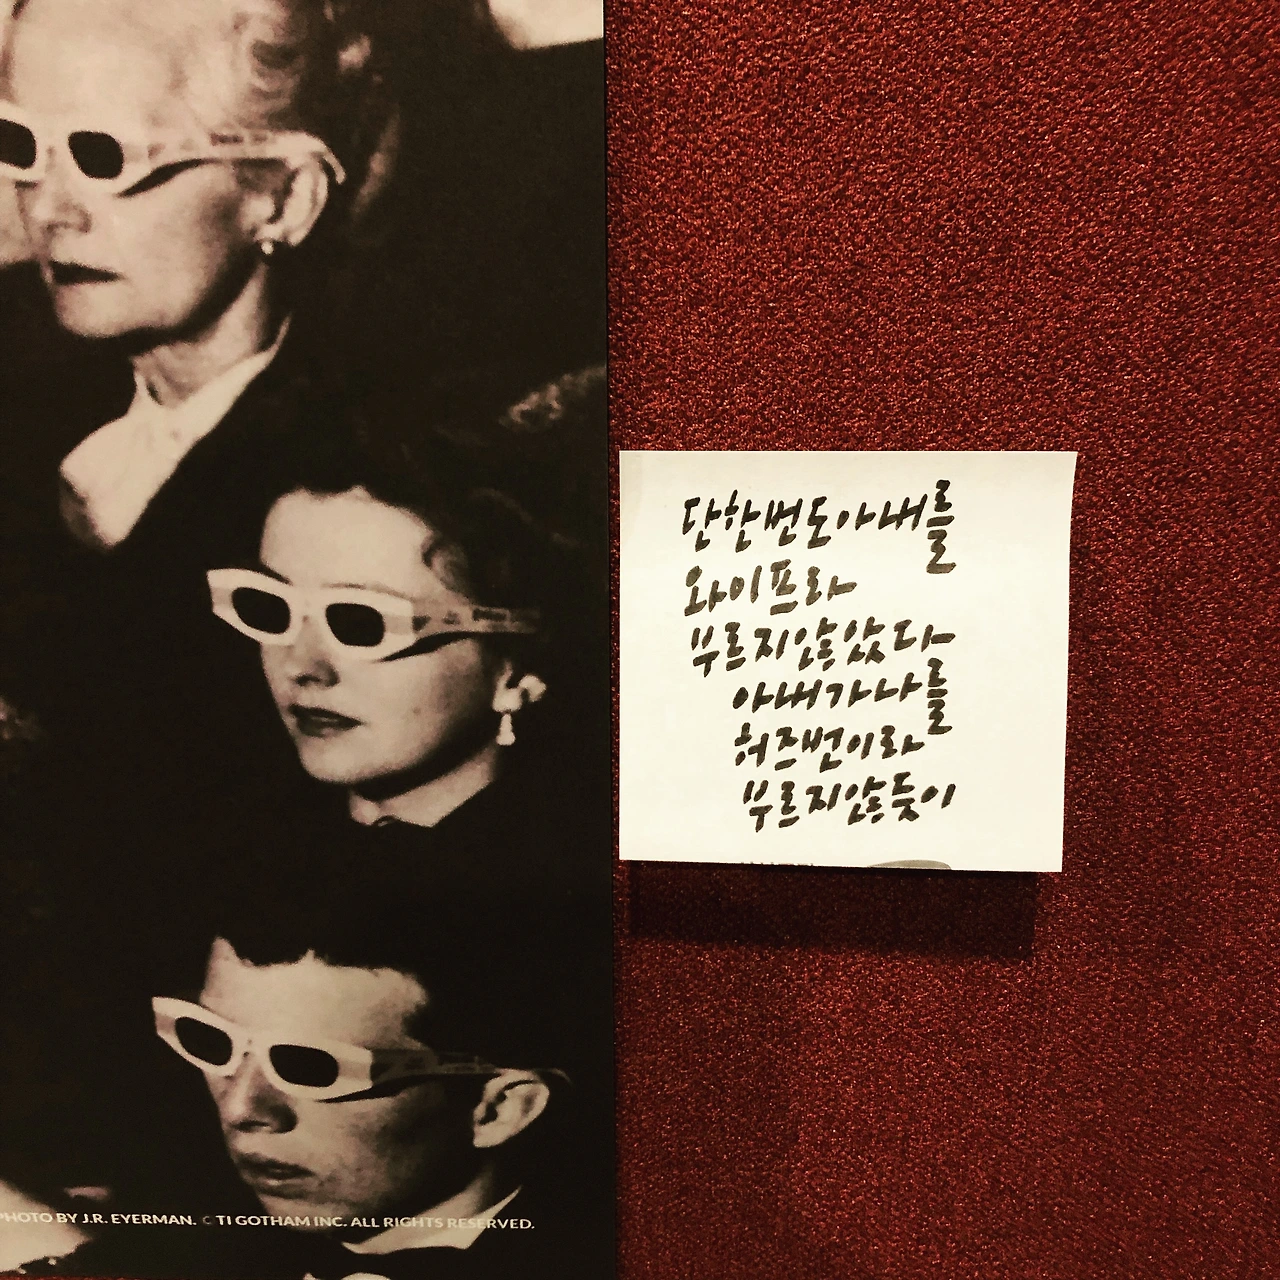 단한번도아내를
와이프라
부르지않았다
아내가나를
허즈번이라
부르지않듯이
PHOTO BY J.R. EYERMAN. © TI GOTHAM INC. ALL RIGHTS RESERVED.